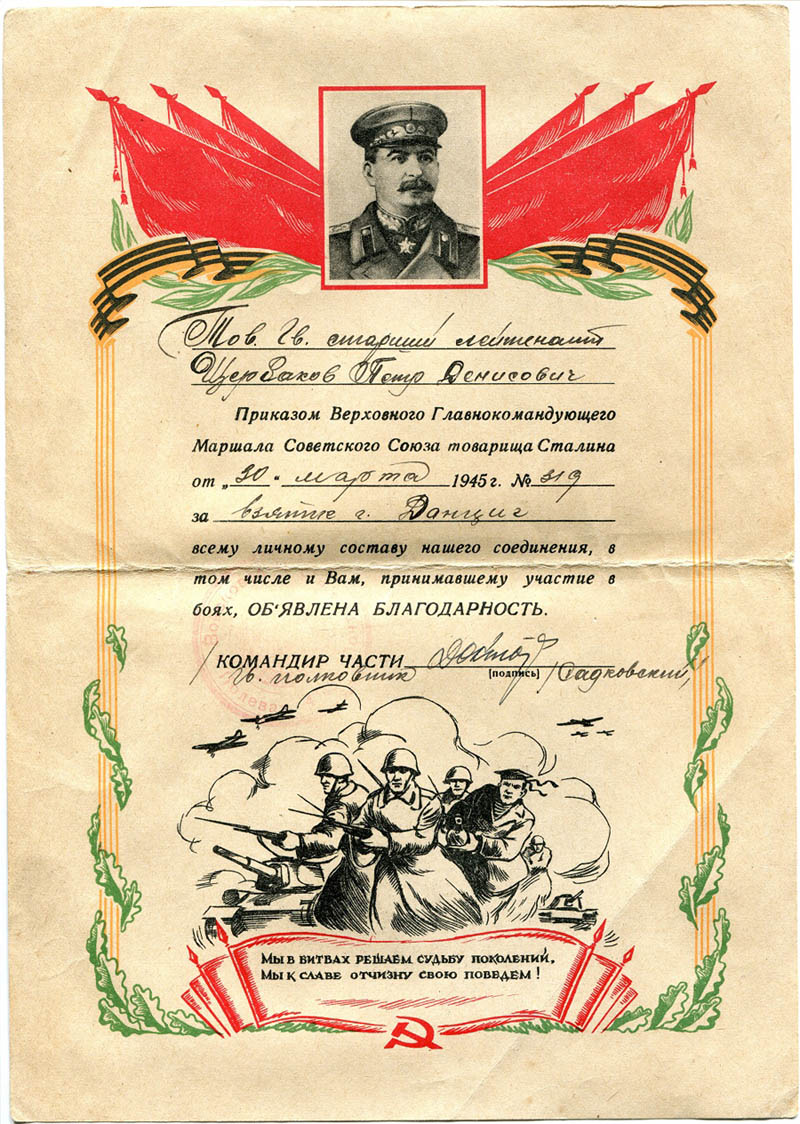 Тов. Гв. старший лейтенант
Щербаков Петр Денисович
Приказом Верховного Главнокомандующего
Маршала Советского Союза товарища Сталина
от „30“ марта 1945 г. № 319
за взятие г. Данциг
всему личному составу нашего соединения, в
том числе и Вам, принимавшему участие в
боях, ОБ'ЯВЛЕНА БЛАГОДАРНОСТЬ.
/ КОМАНДИР ЧАСТИ
Гв. полковник [подпись] /Садковский/
Мы в битвах решаем судьбу поколений,
Мы к славе отчизну свою поведем!